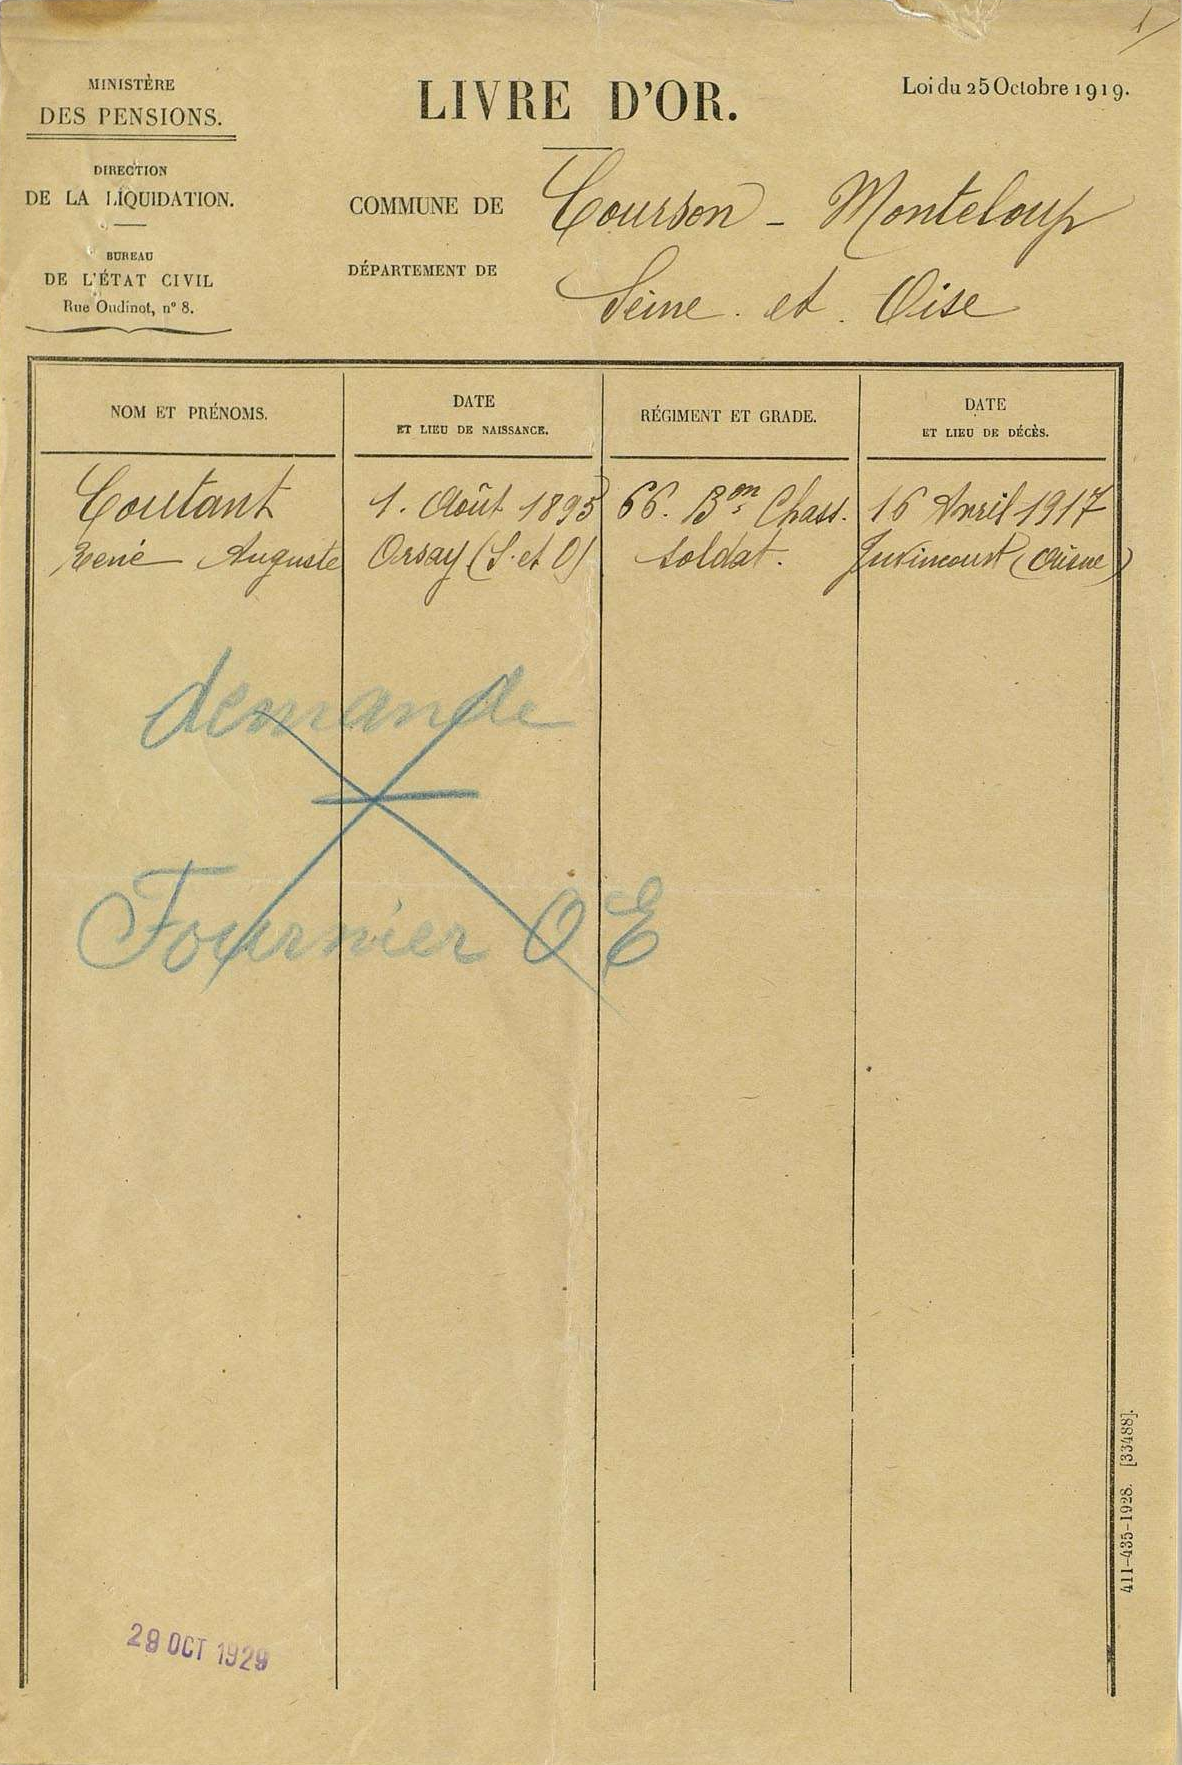 1/
MINISTÈRE
DES PENSIONS.
DIRECTION
DE LA LIQUIDATION.
BUREAU
DE L'ÉTAT CIVIL
Rue Oudinot, n° 8.
LIVRE D'OR.
Loi du 25 Octobre 1919.
COMMUNE DE Courson - Monteloup
DÉPARTEMENT DE Seine . et . Oise
NOM ET PRÉNOMS.
DATE
ET LIEU DE NAISSANCE.
RÉGIMENT ET GRADE.
DATE
ET LIEU DE DÉCÈS.
Coutant
René Auguste
1. Août 1895
Orsay (S. et O)
66. Bons Chass.
soldat.
16 Avril 1917
Juvincourt (Aisne)
demande
Fournier O E
411-435-1928. [33488].
29 OCT 1929